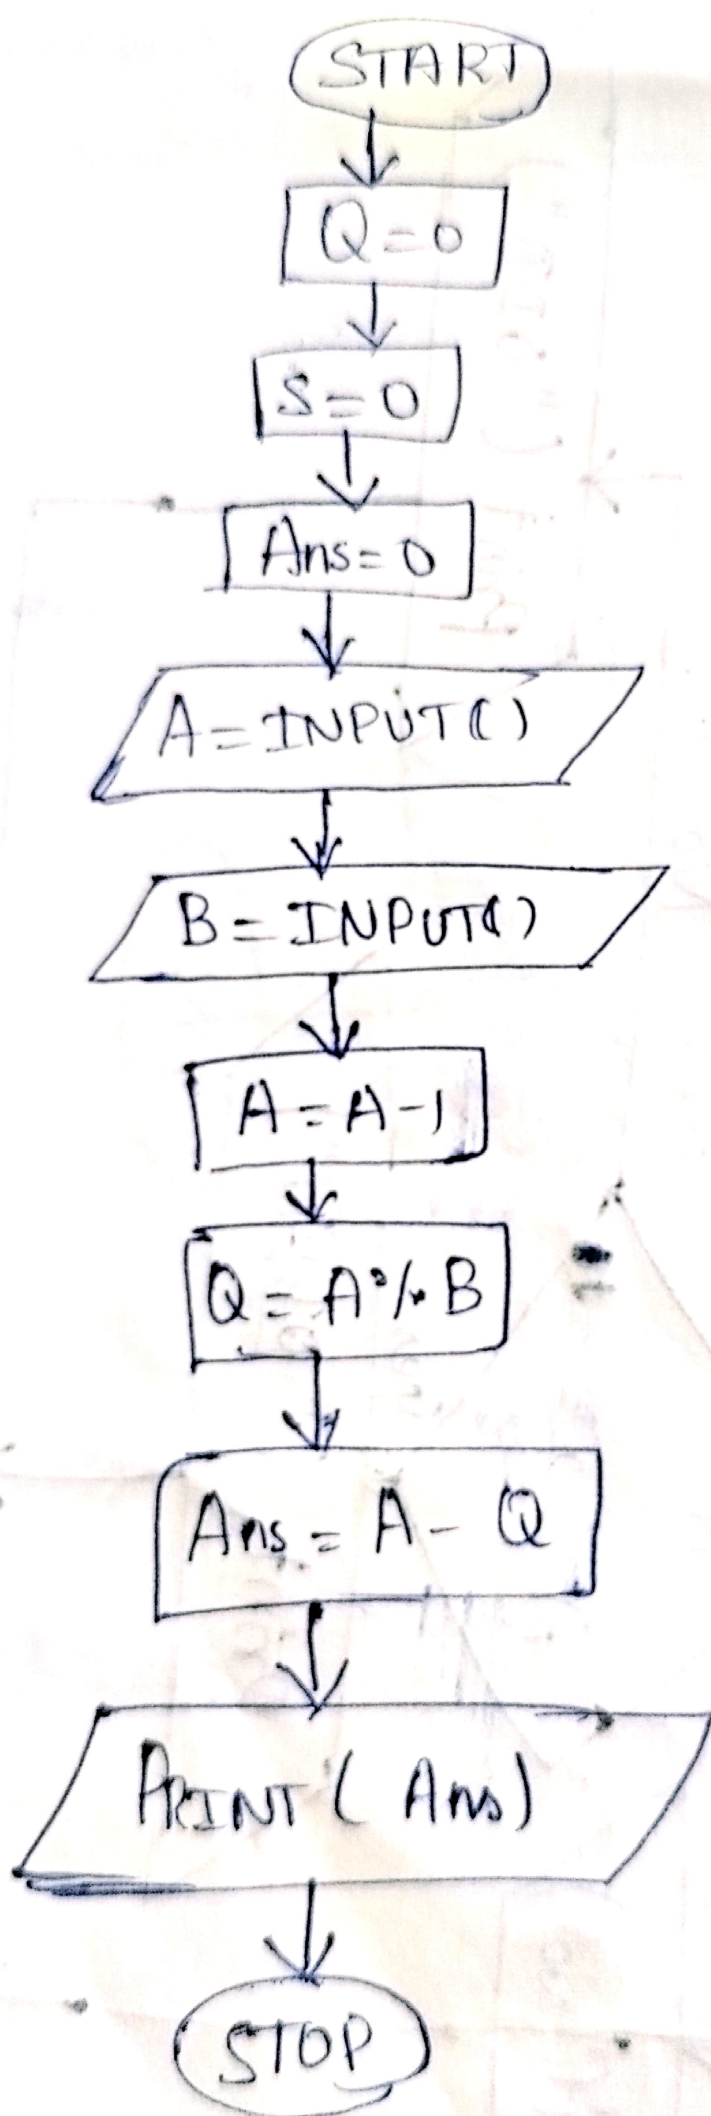 START
Q=0
S=0
Ans=0
A=INPUT()
B=INPUT()
A=A-1
Q=A%B
Ans=A-Q
PRINT(Ans)
STOP